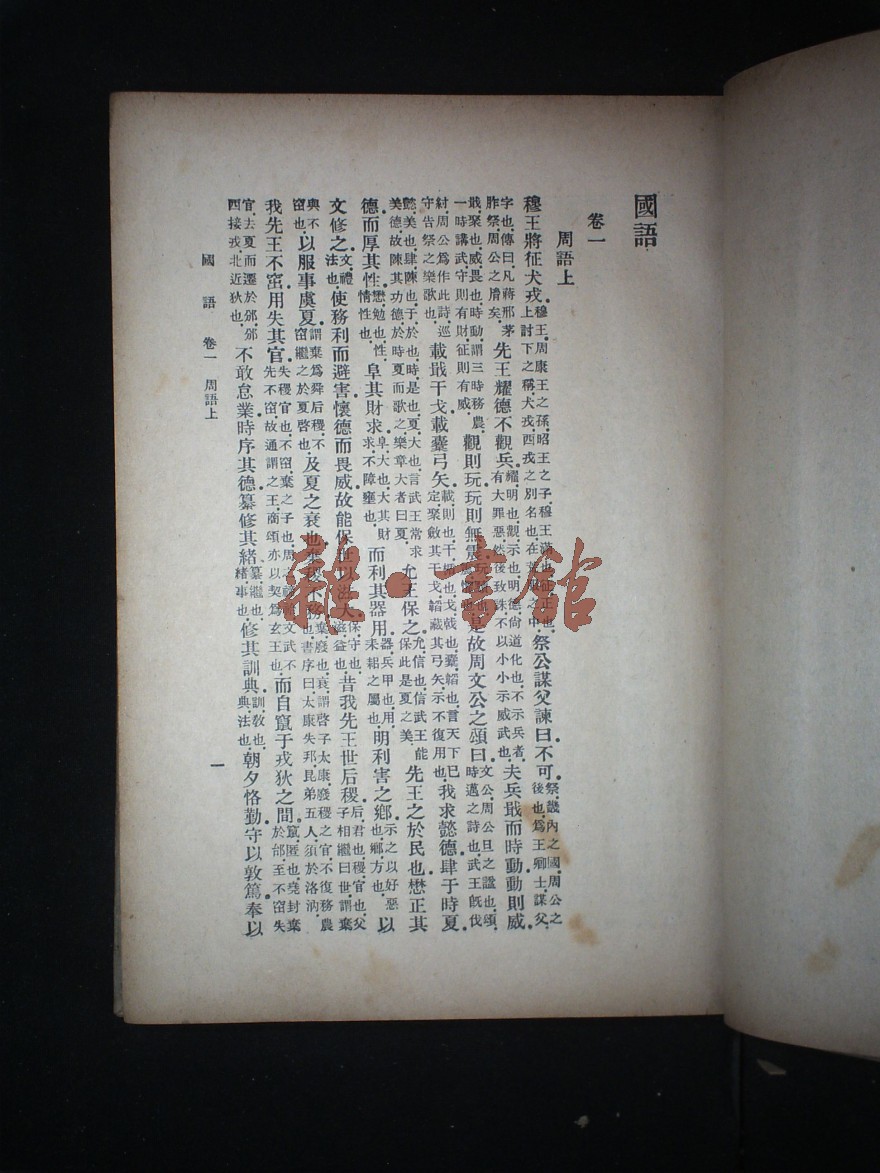 國語
卷一
周語上
穆王將征犬戎。穆王。周康王之孫。昭王之子。穆王滿也。征。正也。上討下之稱。犬戎。西戎之別名也。在荒服之中。祭公謀父諫曰。不可。祭。畿內之國。周公之後也。爲王卿士。謀父。
字也。傳曰。凡蔣邢茅胙祭。周公之胤矣。先王耀德不觀兵。耀。明也。觀。示也。明德。尚道化也。不示兵者。有大罪惡。然後致誅。不以小小示威武也。夫兵戢而時動。動則威。
戢。聚也。威。畏也。時動。謂三時務農。一時講武。守則有財。征則有威。觀則玩。玩則無震。是故周文公之頌曰。文公。周公旦之諡也。頌。時邁之詩也。武王旣伐
紂。周公爲作此詩。巡守告祭之樂歌也。載戢干戈。載櫜弓矢。載。則也。干。楯也。戈。戟也。櫜。韜也。言天下已定。聚斂其干戈。韜藏其弓矢。示不復用也。我求懿德。肆于時夏。
懿。美也。肆。陳也。于。於也。時。是也。夏。大也。言武王常求美德。故陳其功德。於時夏而歌之。樂章大者曰夏。允王保之。允。信也。信武王能保此是夏之美。先王之於民也。懋正其
德而厚其性。懋。勉也。性。情性也。阜其財求。阜。大也。大其財求。不障壅也。而利其器用。器。兵甲也。用。耒耜之屬也。明利害之鄕。示之以好惡也。鄕。方也。以
文修之。文。禮法也。使務利而避害。懷德而畏威。故能保世以滋大。保。守也。滋。益也。昔我先王世后稷。后。君也。稷。官也。父子相繼曰世。謂棄
與不窋也。以服事虞夏。謂棄爲舜后稷。不窋繼之於夏啓也。及夏之衰也。棄稷不務。棄。廢也。衰。謂啓子太康。廢稷之官。不復務農也。書序曰。太康失邦。昆弟五人。須於洛汭。
我先王不窋用失其官。失稷官也。不窋。棄之子也。周之禘祫文武。不先不窋。故通謂之王。商頌亦以契爲玄王也。而自竄于戎狄之間。竄。匿也。堯封棄於邰。至不窋失
官。去夏而遷於邠。邠西接戎。北近狄也。不敢怠業。時序其德。纂修其緖。纂。繼也。緖。事也。修其訓典。訓。敎也。典。法也。朝夕恪勤。守以敦篤。奉以
國語 卷一 周語上
一
雜·書館